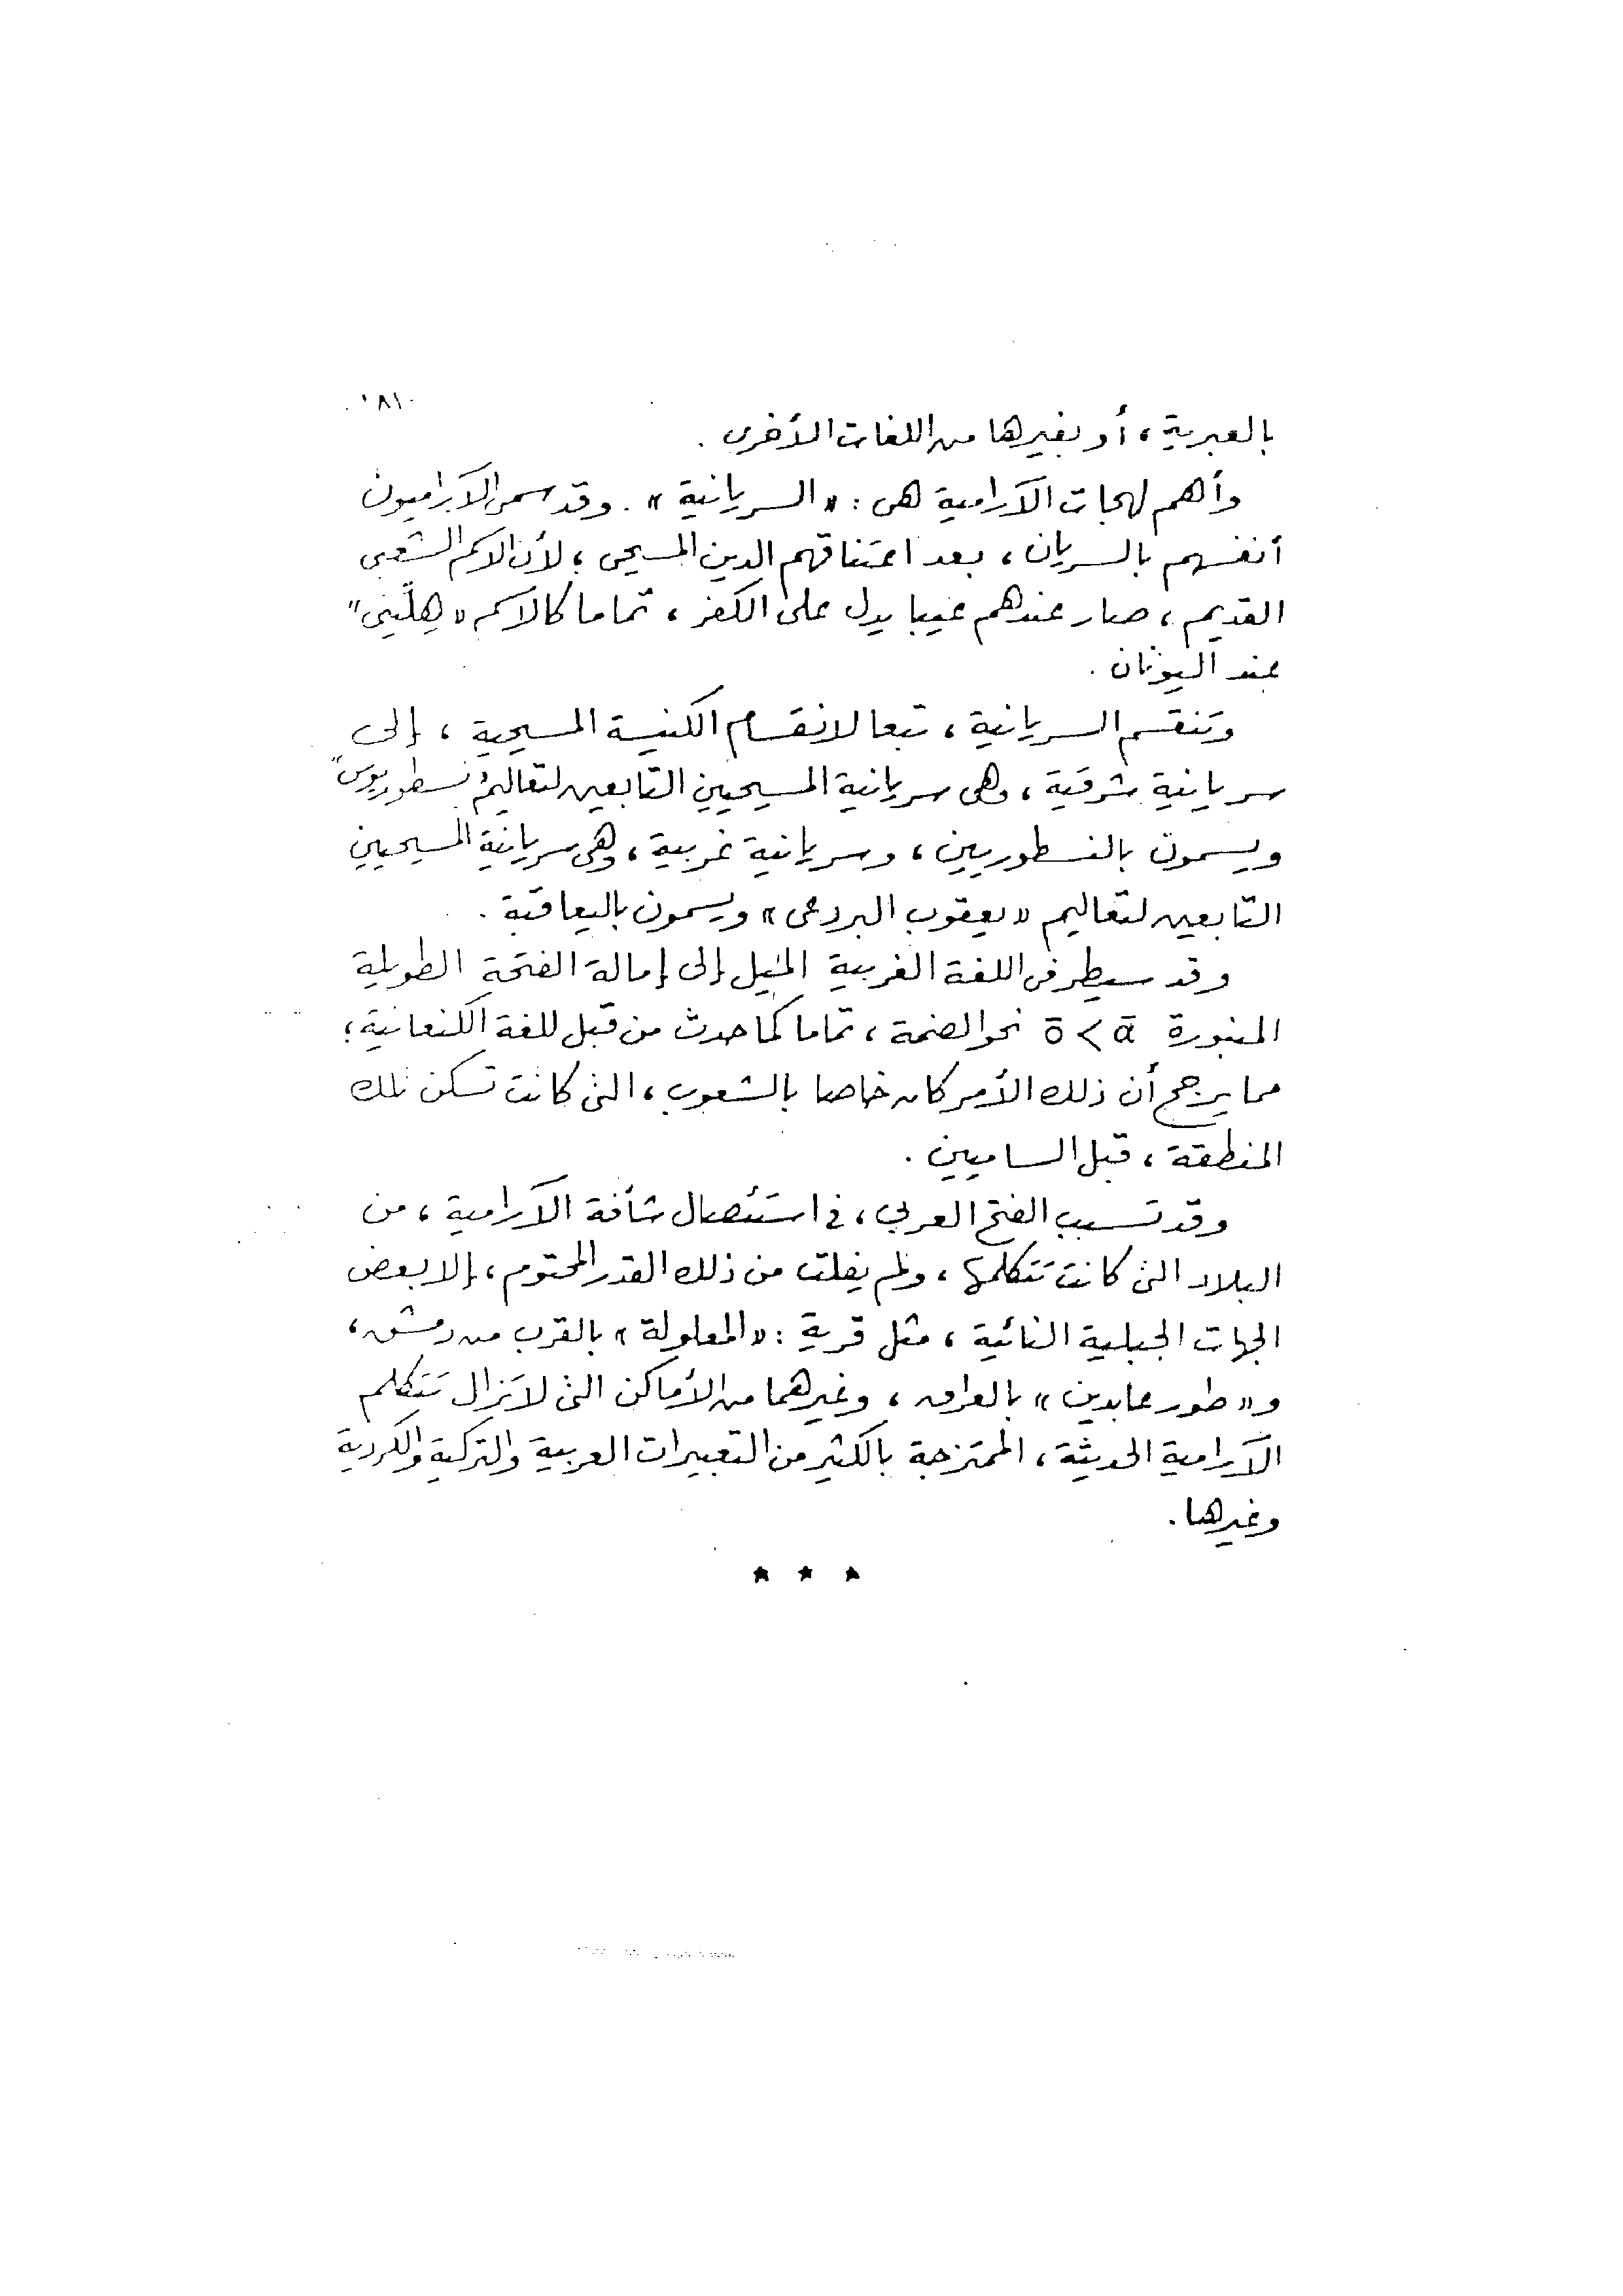 بالعبرية، أو بغيرها من اللغات الأخرى .
وأهم لهجات الآرامية هى : «السريانية» . وقد سمى الآراميون
أنفسهم بالسريان ، بعد اعتناقهم الدين المسيحى ؛ لأن الاسم الشعبى
القديم ، صار عندهم عيبا يدل على الكفر ، تماما كالاسم «هِلّينى»
عند اليونان .
وتنقسم السريانية ، تبعا لانقسام الكنيسة المسيحية ، إلى
سريانية شرقية ، وهى سريانية المسيحيين التابعين لتعاليم «نسطوريوس»
ويسمون بالنسطوريين ، وسريانية غربية ، وهى سريانية المسيحيين
التابعين لتعاليم «يعقوب البردعى» ويسمون باليعاقبة .
وقد سيطر فى اللغة الغربية الميل إلى إمالة الفتحة الطويلة
المنبورة ō < ā نحو الضمة ، تماما كما حدث من قبل للغة الكنعانية ؛
مما يرجح أن ذلك الأمر كان خاصا بالشعوب ، التى كانت تسكن تلك
المنطقة ، قبل الساميين .
وقد تسبب الفتح العربى ، فى استئصال شأفة الآرامية ، من
البلاد التى كانت تتكلمها ، ولم يفلت من ذلك القدر المحتوم ، إلا بعض
الجهات الجبلية النائية ، مثل قرية : «المعلولة» بالقرب من دمشق ،
و«طور عابدين» بالعراق ، وغيرهما من الأماكن التى لا تزال تتكلم
الآرامية الحديثة ، الممتزجة بالكثير من التعبيرات العربية والتركية والكردية
وغيرها .
* * *